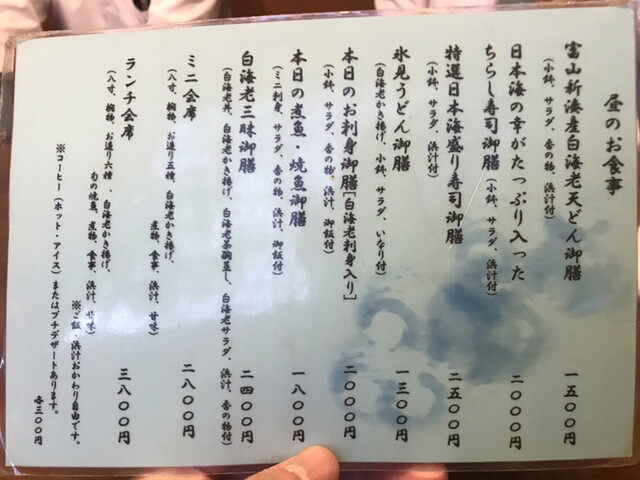 昼のお食事
富山新湊産白海老天どん御膳 一五〇〇円
(小鉢、サラダ、香の物、浜汁付)
日本海の幸がたっぷり入った
ちらし寿司御膳(小鉢、サラダ、浜汁付) 二〇〇〇円
特選日本海盛り寿司御膳 二五〇〇円
(小鉢、サラダ、浜汁付)
氷見うどん御膳 一三〇〇円
(白海老かき揚げ、小鉢、サラダ、いなり付)
本日のお刺身御膳[白海老刺身入り] 二〇〇〇円
(小鉢、サラダ、香の物、浜汁、御飯付)
本日の煮魚・焼魚御膳 一八〇〇円
(ミニ刺身、サラダ、香の物、浜汁、御飯付)
白海老三昧御膳 二四〇〇円
(白海老丼、白海老かき揚げ、白海老茶碗蒸し、白海老サラダ、浜汁、香の物付)
ミニ会席 二八〇〇円
(八寸、椀物、お造り五種、白海老かき揚げ、
煮物、食事、浜汁、甘味)
ランチ会席 三八〇〇円
(八寸、椀物、お造り六種、白海老かき揚げ、
旬の焼魚、煮物、食事、浜汁、甘味)
※ご飯・浜汁おかわり自由です。
※コーヒー(ホット・アイス)またはプチデザートあります。
各三〇〇円